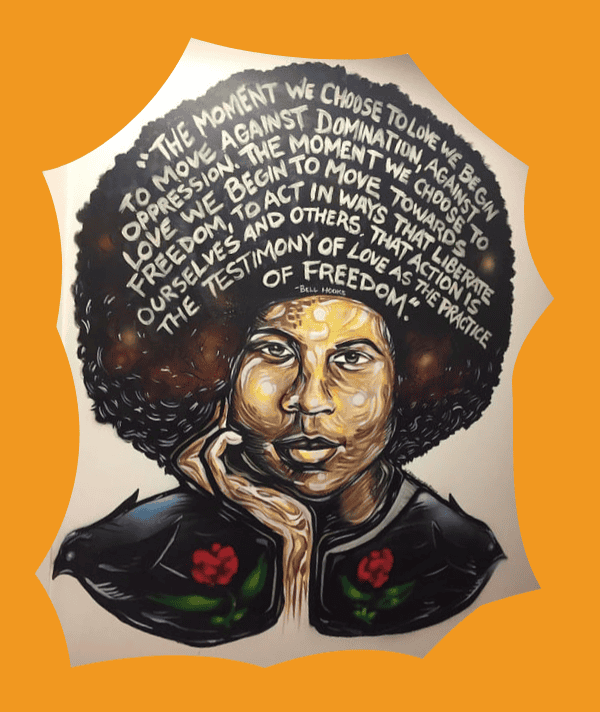 "THE MOMENT WE CHOOSE TO LOVE WE BEGIN
TO MOVE AGAINST DOMINATION, AGAINST
OPPRESSION. THE MOMENT WE CHOOSE TO
LOVE WE BEGIN TO MOVE TOWARDS
FREEDOM, TO ACT IN WAYS THAT LIBERATE
OURSELVES AND OTHERS. THAT ACTION IS
THE TESTIMONY OF LOVE AS THE PRACTICE
OF FREEDOM."
-BELL HOOKS